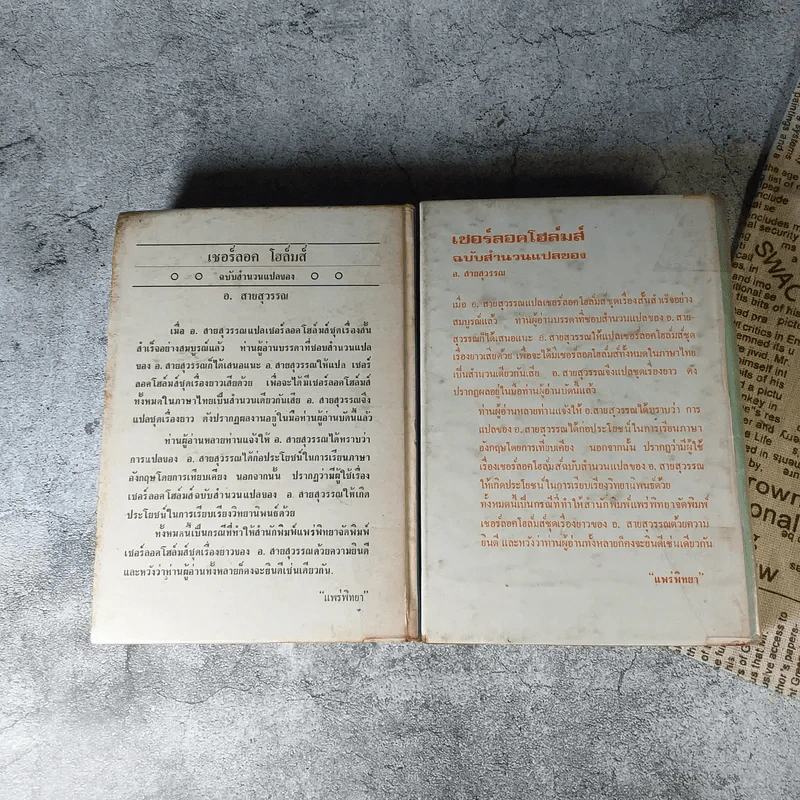 เชอร์ลอค โฮล์มส์
ฉบับสำนวนแปลของ
อ. สายสุวรรณ
เมื่อ อ. สายสุวรรณแปลเชอร์ลอคโฮล์มส์ชุดเรื่องสั้น
สำเร็จอย่างสมบูรณ์แล้ว ท่านผู้อ่านบรรดาที่ชอบสำนวนแปล
ของ อ. สายสุวรรณก็ได้เสนอแนะ อ. สายสุวรรณให้แปล เชอร์
ลอคโฮล์มส์ชุดเรื่องยาวเสียด้วย เพื่อจะได้มีเชอร์ลอคโฮล์มส์
ทั้งหมดในภาษาไทยเป็นสำนวนเดียวกันเสีย อ. สายสุวรรณจึง
แปลชุดเรื่องยาว ดังปรากฏผลงานอยู่ในมือท่านผู้อ่านบัดนี้แล้ว
ท่านผู้อ่านหลายท่านแจ้งให้ อ. สายสุวรรณได้ทราบว่า
การแปลของ อ. สายสุวรรณได้ก่อประโยชน์ในการเรียนภาษา
อังกฤษโดยการเทียบเคียง นอกจากนั้น ปรากฏว่ามีผู้ใช้เรื่อง
เชอร์ลอคโฮล์มส์ฉบับสำนวนแปลของ อ. สายสุวรรณให้เกิด
ประโยชน์ในการเรียบเรียงวิทยานิพนธ์ด้วย
ทั้งหมดนี้เป็นกรณีที่ทำให้สำนักพิมพ์แพร่พิทยาจัดพิมพ์
เชอร์ลอคโฮล์มส์ชุดเรื่องยาวของ อ. สายสุวรรณด้วยความยินดี
และหวังว่าท่านผู้อ่านทั้งหลายก็คงจะยินดีเช่นเดียวกัน.
"แพร่พิทยา"
เชอร์ลอคโฮล์มส์
ฉบับสำนวนแปลของ
อ. สายสุวรรณ
เมื่อ อ. สายสุวรรณแปลเชอร์ลอคโฮล์มส์ชุดเรื่องสั้นสำเร็จอย่าง
สมบูรณ์แล้ว ท่านผู้อ่านบรรดาที่ชอบสำนวนแปลของ อ. สาย-
สุวรรณก็ได้เสนอแนะ อ. สายสุวรรณให้แปลเชอร์ลอคโฮล์มส์ชุด
เรื่องยาวเสียด้วย เพื่อจะได้มีเชอร์ลอคโฮล์มส์ทั้งหมดในภาษาไทย
เป็นสำนวนเดียวกันเสีย อ. สายสุวรรณจึงแปลชุดเรื่องยาว ดัง
ปรากฏผลอยู่ในมือท่านผู้อ่านบัดนี้แล้ว
ท่านผู้อ่านหลายท่านแจ้งให้ อ.สายสุวรรณได้ทราบว่า การ
แปลของ อ.สายสุวรรณได้ก่อประโยชน์ในการเรียนภาษา
อังกฤษโดยการเทียบเคียง นอกจากนั้น ปรากฏว่ามีผู้ใช้
เรื่องเชอร์ลอคโฮล์มส์ฉบับสำนวนแปลของ อ. สายสุวรรณ
ให้เกิดประโยชน์ในการเรียบเรียงวิทยานิพนธ์ด้วย
ทั้งหมดนี้เป็นกรณีที่ทำให้สำนักพิมพ์แพร่พิทยาจัดพิมพ์
เชอร์ลอคโฮล์มส์ชุดเรื่องยาวของ อ. สายสุวรรณด้วยความ
ยินดี และหวังว่าท่านผู้อ่านทั้งหลายก็คงจะยินดีเช่นเดียวกัน
"แพร่พิทยา"
SWAC